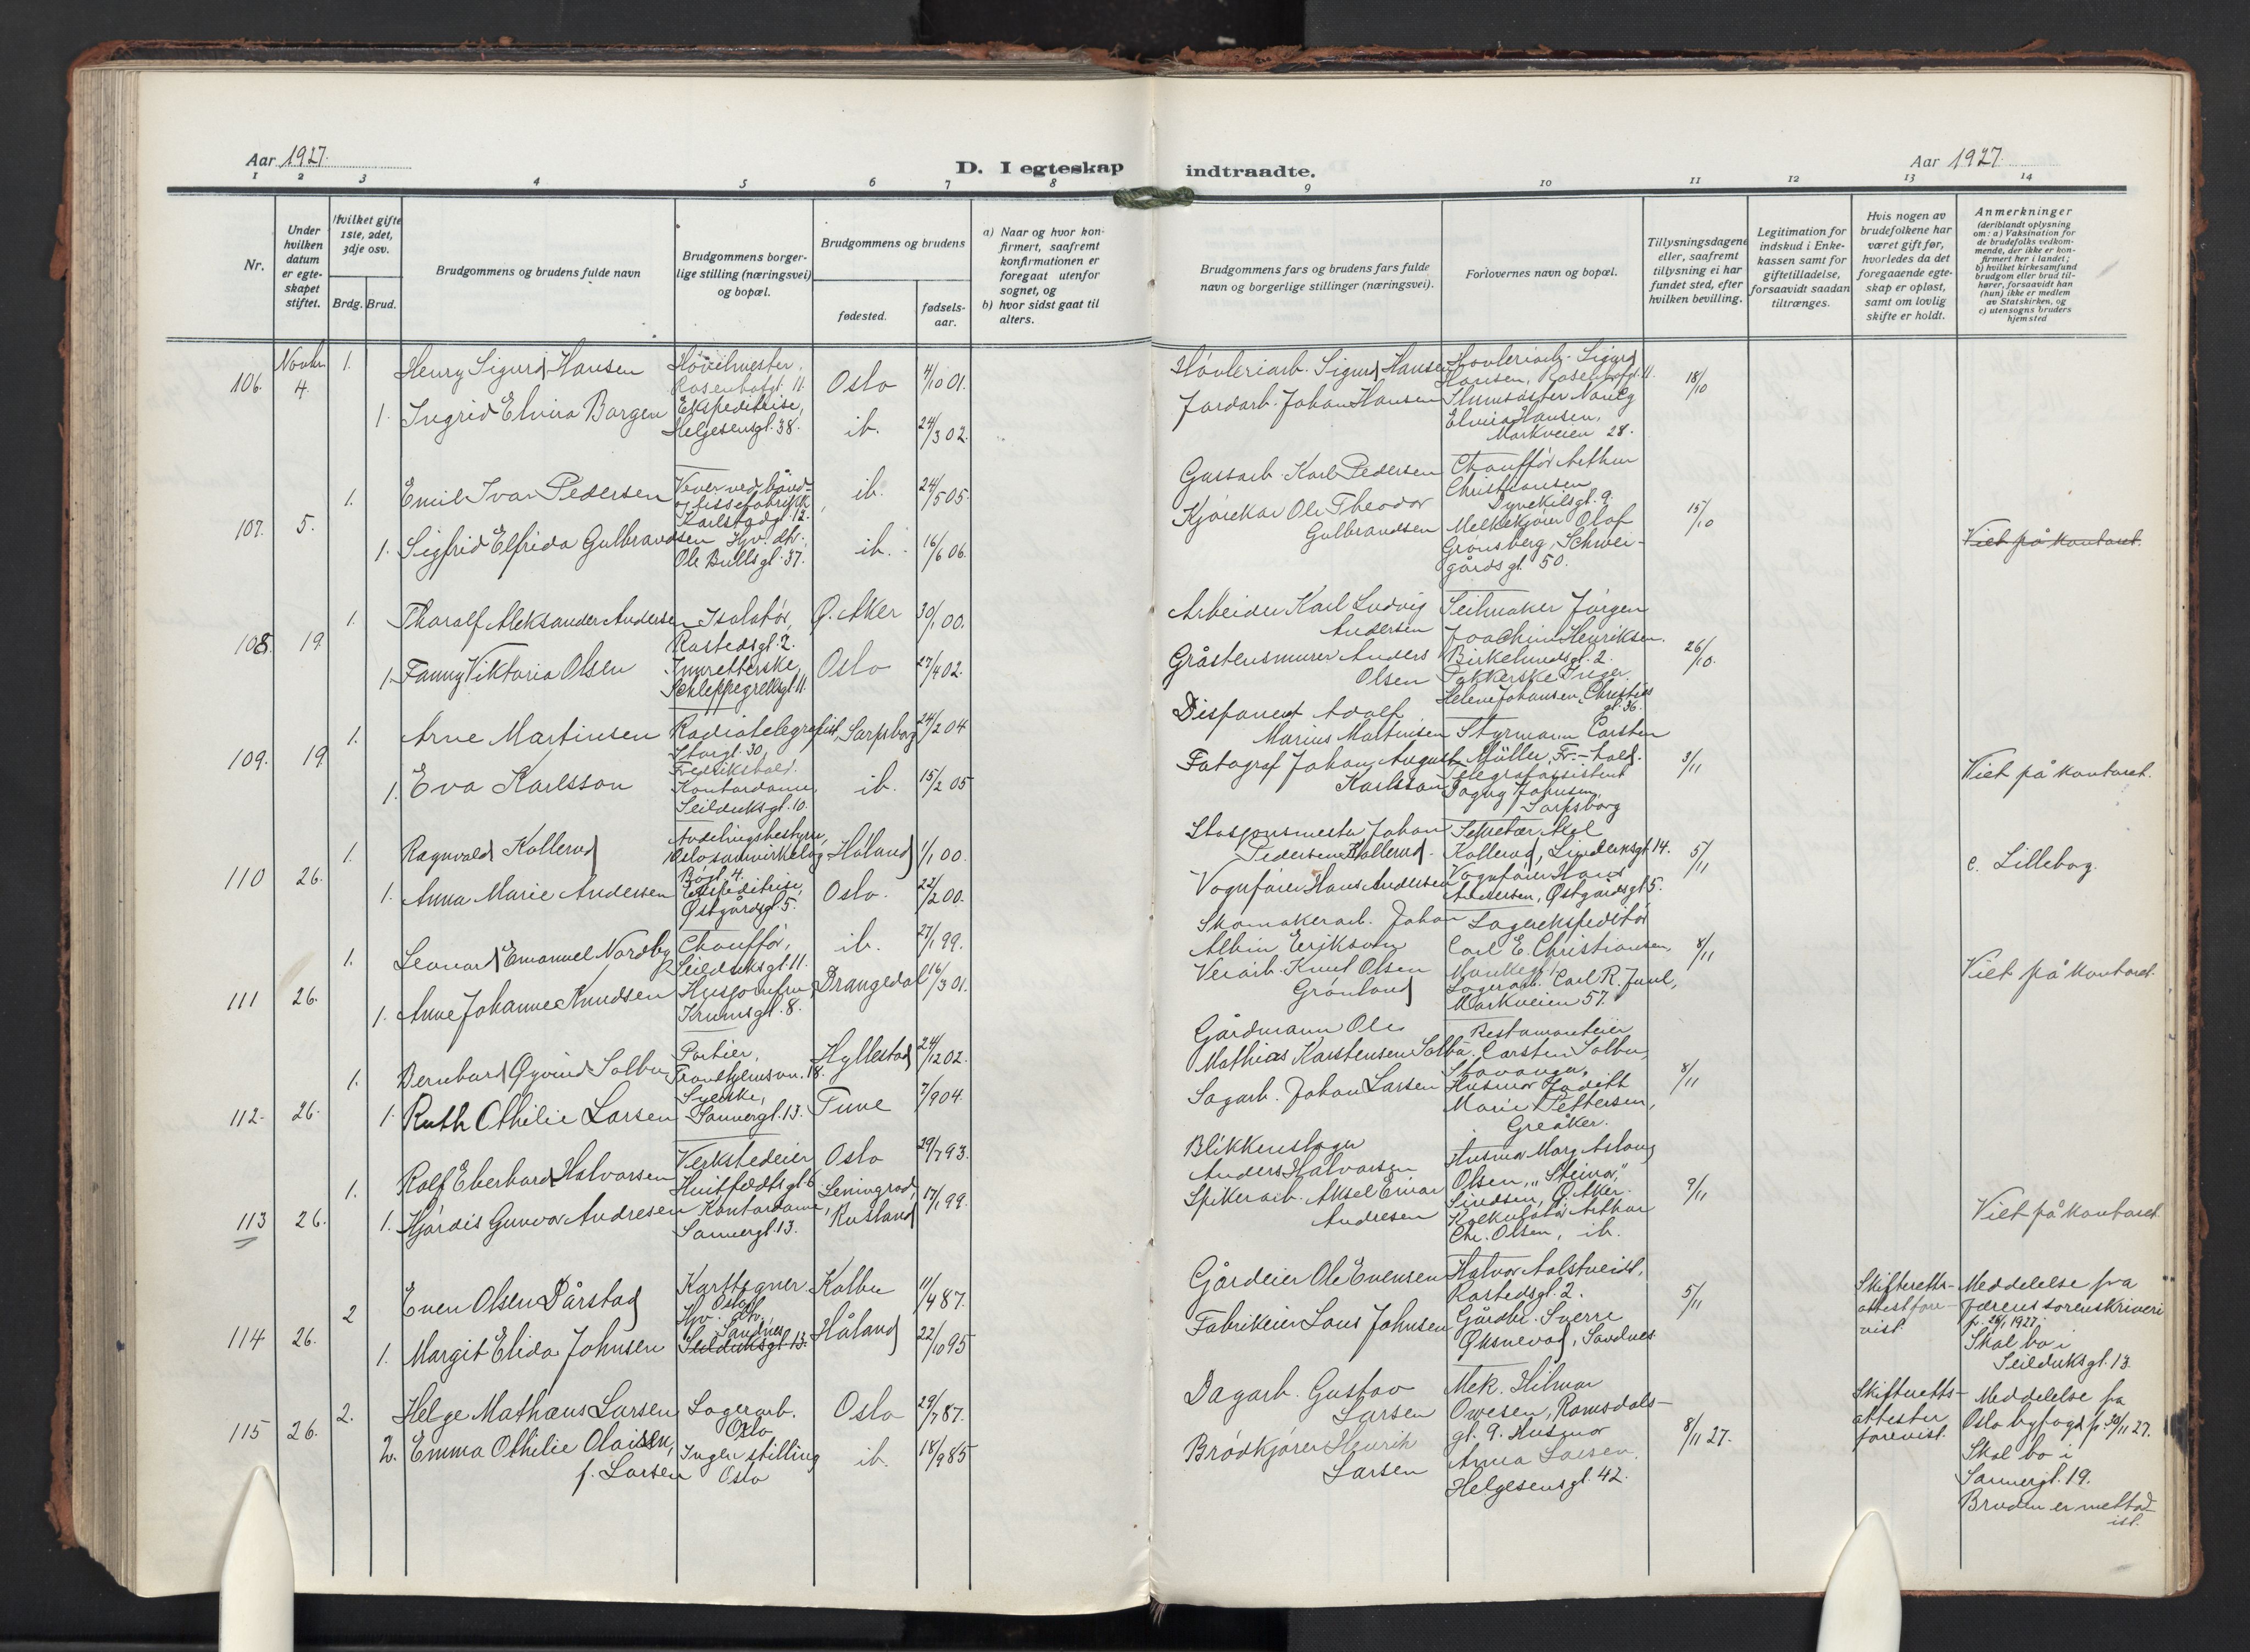 Aar 1927.
D. I egteskap
indtraadte.
Aar 1927.
1 2 3 4 5 6 7 8
9 10 11 12 13 14
Nr.
Under hvilken datum er egteskapet stiftet.
Hvilket gifte 1ste, 2det, 3dje osv.
Brdg. Brud.
Brudgommens og brudens fulde navn
Brudgommens borgerlige stilling (næringsvei) og bopæl.
Brudgommens og brudens
fødested.
fødselsaar.
a) Naar og hvor konfirmert, saafremt konfirmationen er foregaat utenfor sognet, og
b) hvor sidst gaat til alters.
Brudgommens fars og brudens fars fulde navn og borgerlige stillinger (næringsvei).
Forlovernes navn og bopæl.
Tillysningsdagene eller, saafremt tillysning ei har fundet sted, efter hvilken bevilling.
Legitimation for indskud i Enkekassen samt for giftetilladelse, forsaavidt saadan tiltrænges.
Hvis nogen av brudefolkene har været gift før, hvorledes da det foregaaende egteskap er opløst, samt om lovlig skifte er holdt.
Anmerkninger
(deriblandt oplysning om: a) Vaksination for de brudefolks vedkommende, der ikke er konfirmert her i landet;
b) hvilket kirkesamfund brudgom eller brud tilhører, forsaavidt han (hun) ikke er medlem av Statskirken, og
c) utensogns bruders hjemsted
106. Novbr 4. 1. Henry Sigurd Hansen Høvelmester, Rosenhofgt. 11. Oslo 4/10 01.
1. Ingrid Elvira Borgen Ekspeditrise, Helgesensgt. 38. ib. 24/3 02.
Høvleriarb. Sigurd Hansen
Jordarb. Johan Hansen
Høvleriarb. Sigurd Hansen, Rosenhofgt. 11.
Elvira Hansen, Markveien 28.
18/10
107. 5. 1. Emil Ivar Pedersen Karlstadgt. 12. ib. 24/5 05.
1. Sigfrid Elfrida Gulbrandsen Hjv. dtr. Ole Bullsgt. 37. ib. 16/6 06.
Gassarb. Karl Pedersen
Kjørekar Ole Theodor Gulbrandsen
Chauffør Arthur Christiansen Dynekilsgt. 9.
Melkekjører Olaf Grønsberg, Schweigårds gt. 50.
15/10
Viet på kontoret.
108. 19. 1. Tharalf Aleksander Andersen Isolatør, Rostedsgt. 2. Ø. Aker 30/1 00.
1. Fanny Viktoria Olsen Innretterske, Schleppegrellsgt. 11. Oslo 27/4 02.
Arbeider Karl Ludvig Andersen
Gråstensmurer Anders Olsen
Seilmaker Jørgen Joachim Henriksen. Birkelundsgt. 2.
Pakkerske Inger Helene Johansen, Christies gt. 36.
26/10.
109. 19. 1. Arne Martinsen Radiotelegrafist, Storgt. 30, Fredrikshald. Sarpsborg 24/2 04
1. Eva Karlsson Kontordame, Seilduksgt. 10. ib. 15/2 05
Disponent Adolf Marius Martinsen
Fotograf Johan August Karlsson
Styrmann Carsten Müller, Fr.-hald.
Telegrafassistent Dagny Johnsen, Sarpsborg
3/11
Viet på kontoret.
110 26. 1. Ragnvald Kollerud Avdelingsbestyrer, Oslo samvirkelag Bøgt. 4. Høland 1/1 00.
1. Anna Marie Andersen Ekspeditrise, Østgårdsgt. 5. Oslo. 22/2 00.
Stasjonsmester Johan Pedersen Kollerud.
Vognfører Hans Andersen
Sekretær Aksel Kollerud, Lindernsgt. 14.
Vognfører Hans Andersen, Østgårdsgt. 5.
5/11
c. Lilleborg.
111 26. 1. Leonard Emanuel Nordby Chauffør, Seilduksgt. 11. ib. 27/1 99.
1. Anne Johanne Knudsen Husjomfru, Krumsgt. 8. Drangedal 16/3 01.
Skomakerarb. Johan Albin Eriksson
Veiarb. Knut Olsen Grønland
Lagerekspeditør Carl E. Christiansen,
Lagerarb. Carl R. Juul, Markveien 57.
8/11
Viet på kontoret.
112. 26. 1. Bernhard Øyvind Solbu Portier, Trondhjemsvn. 18. Hyllestad 24/12 02.
1. Ruth Othilie Larsen Syerske, Sannergt. 13. Tune 7/9 04.
Gårdmann Ole Mathias Karstensen Solbu.
Sagarb. Johan Larsen
Restauranteier Carsten Solbu, Stavanger.
Husmor Judith Marie Pettersen, Greåker.
8/11
113 26. 1. Rolf Eberhard Halvorsen Verkstedeier Huitfeldtsgt. 6 Oslo 29/7 93.
1. Hjørdis Gunvor Andresen Kontordame, Sannergt. 13. Leningrad, Rusland 17/1 99.
Blikkenslager Anders Halvorsen
Spikerarb. Aksel Einar Andresen
Husmor Marg. Aslaug Olsen, „Steinar," Ø. Aker.
Kalkulatør Arthur Chr. Olsen, ib.
9/11
Viet på kontoret
114 26. 2 Even Olsen Dårstad Karttegner Oslo Kolbu 11/4 87.
1. Margit Elida Johnsen Hjv. dtr., Sandnes Seilduksgt. 13. Håland 22/10 95
Gårdeier Ole Evensen
Fabrikeier Lars Johnsen
Halvor Aalstveidt, Rostedsgt. 2.
Gårdbr. Sverre Øksnevad, Sandnes.
5/11
Skifterettsattest forevist.
Meddelelse fra Jærens sorenskriveri
Skal bo i Seilduksgt. 13.
115 26. 2. Helge Mathæus Larsen Lagerarb. Oslo Oslo 29/7 87.
2. Emma Othilie Olaisen, f. Larsen Ingen stilling Oslo ib. 18/9 85
Dagarb. Gustav Larsen
Brødkjører Henrik Larsen
Mek. Hilmar Owesen, Romsdalsgt. 9.
Husmor Anna Larsen, Helgesensgt. 42.
8/11 27.
Skifterettsattester forevist.
Meddelelse fra Oslo byfogd p. 30/11 27.
Skal bo i Sannergt. 19.
Bruden er metodist.